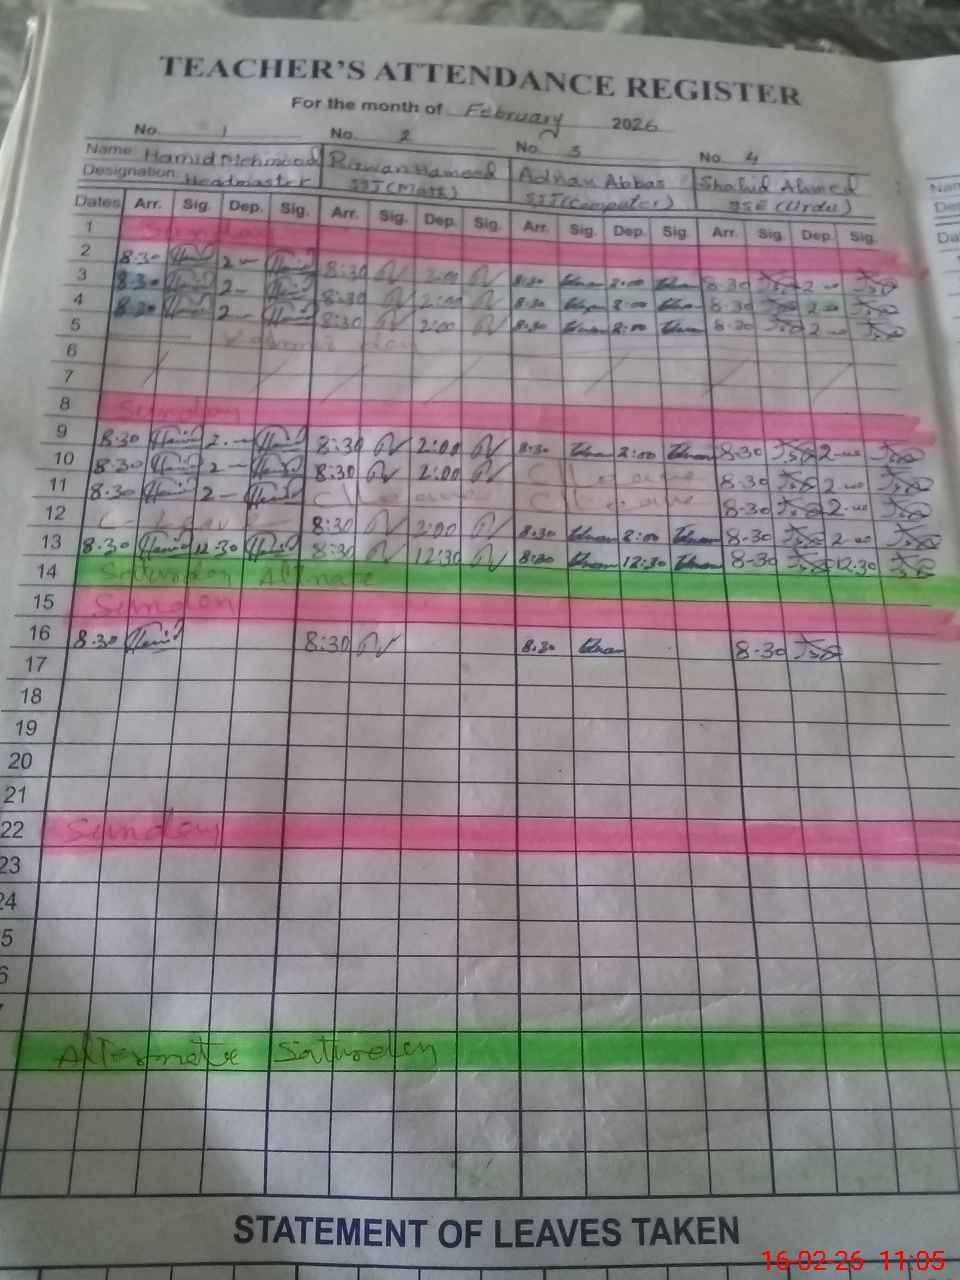 TEACHER'S ATTENDANCE REGISTER
For the month of February 2026
No. 1 No. 2 No. 3 No. 4
Name: Hamid Mehmood Rizwan Hameed Adnan Abbas Shahid Ahmed
Designation: Headmaster SST(Math) SST(Computer) SSE (Urdu)
Dates Arr. Sig. Dep. Sig. Arr. Sig. Dep. Sig. Arr. Sig. Dep. Sig. Arr. Sig. Dep. Sig.
1 Sunday
2 8.30 2 — 8:30 2:00 8:30 2:00 8-30 2-00
3 8.30 2 — 8:30 2:00 8:30 2:00 8-30 2-00
4 8.30 2 — 8:30 2:00 8:30 2:00 8-30 2-00
5 day
6
7
8 Sunday
9 8.30 2 — 8:30 2:00 8:30 2:00 8-30 2-00
10 8.30 2 — 8:30 2:00 C/Leave 8-30 2-00
11 8.30 2 — C/Leave C/Leave 8-30 2-00
12 C- Leave 8:30 2:00 8:30 2:00 8-30 2-00
13 8.30 12.30 8:30 12:30 8:30 12:30 8-30 12.30
14 Saturday Altrnate
15 Sunday
16 8.30 8:30 8:30 8-30
17
18
19
20
21
22 Sunday
23
24
5
6
Alternate Saturday
STATEMENT OF LEAVES TAKEN
16-02-26 11:05